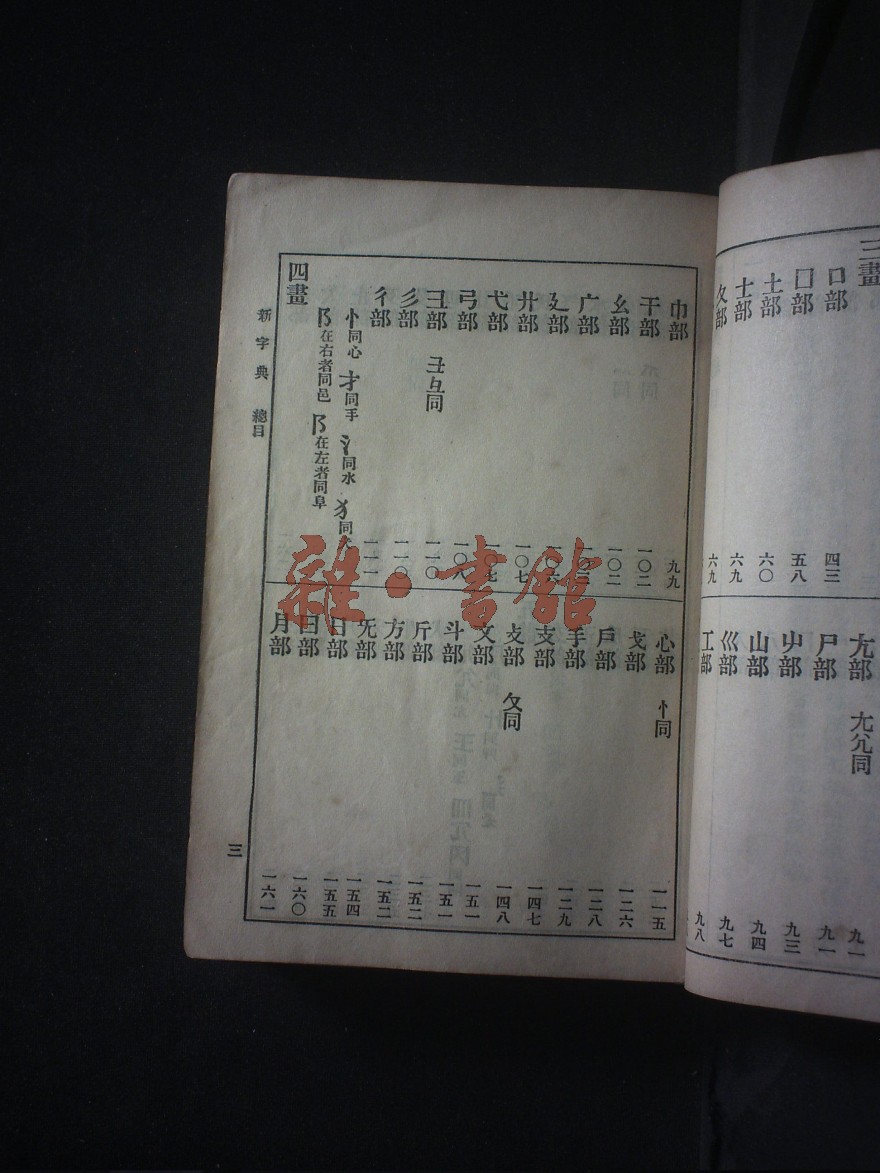 三畫
口部 四三
囗部 五八
土部 六〇
士部 六九
夂部 六九
尢部 尣同 九一
尸部 九一
屮部 九三
山部 九四
巛部 九七
工部 九八
巾部 九九
干部 一〇二
幺部 一〇二
广部
廴部
廾部 一〇七
弋部 一〇七
弓部 一〇八
彐部 彑同 一一〇
彡部 一一〇
彳部 一一一
忄同心 扌同手 氵同水 犭同
阝在右者同邑 阝在左者同阜
四畫
心部 忄同 一一五
戈部 一二六
戶部 一二八
手部 一二九
支部 一四七
攴部 攵同 一四八
文部 一五一
斗部 一五一
斤部 一五二
方部 一五二
旡部 一五四
日部 一五五
曰部 一六〇
月部 一六一
新字典 總目
三
雜·書館